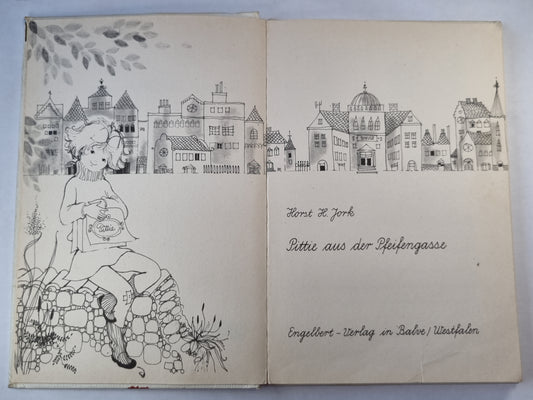 Pittie
Horst H. Jork
Pittie aus der Pfeifengasse
Engelbert-Verlag in Balve/Westfalen